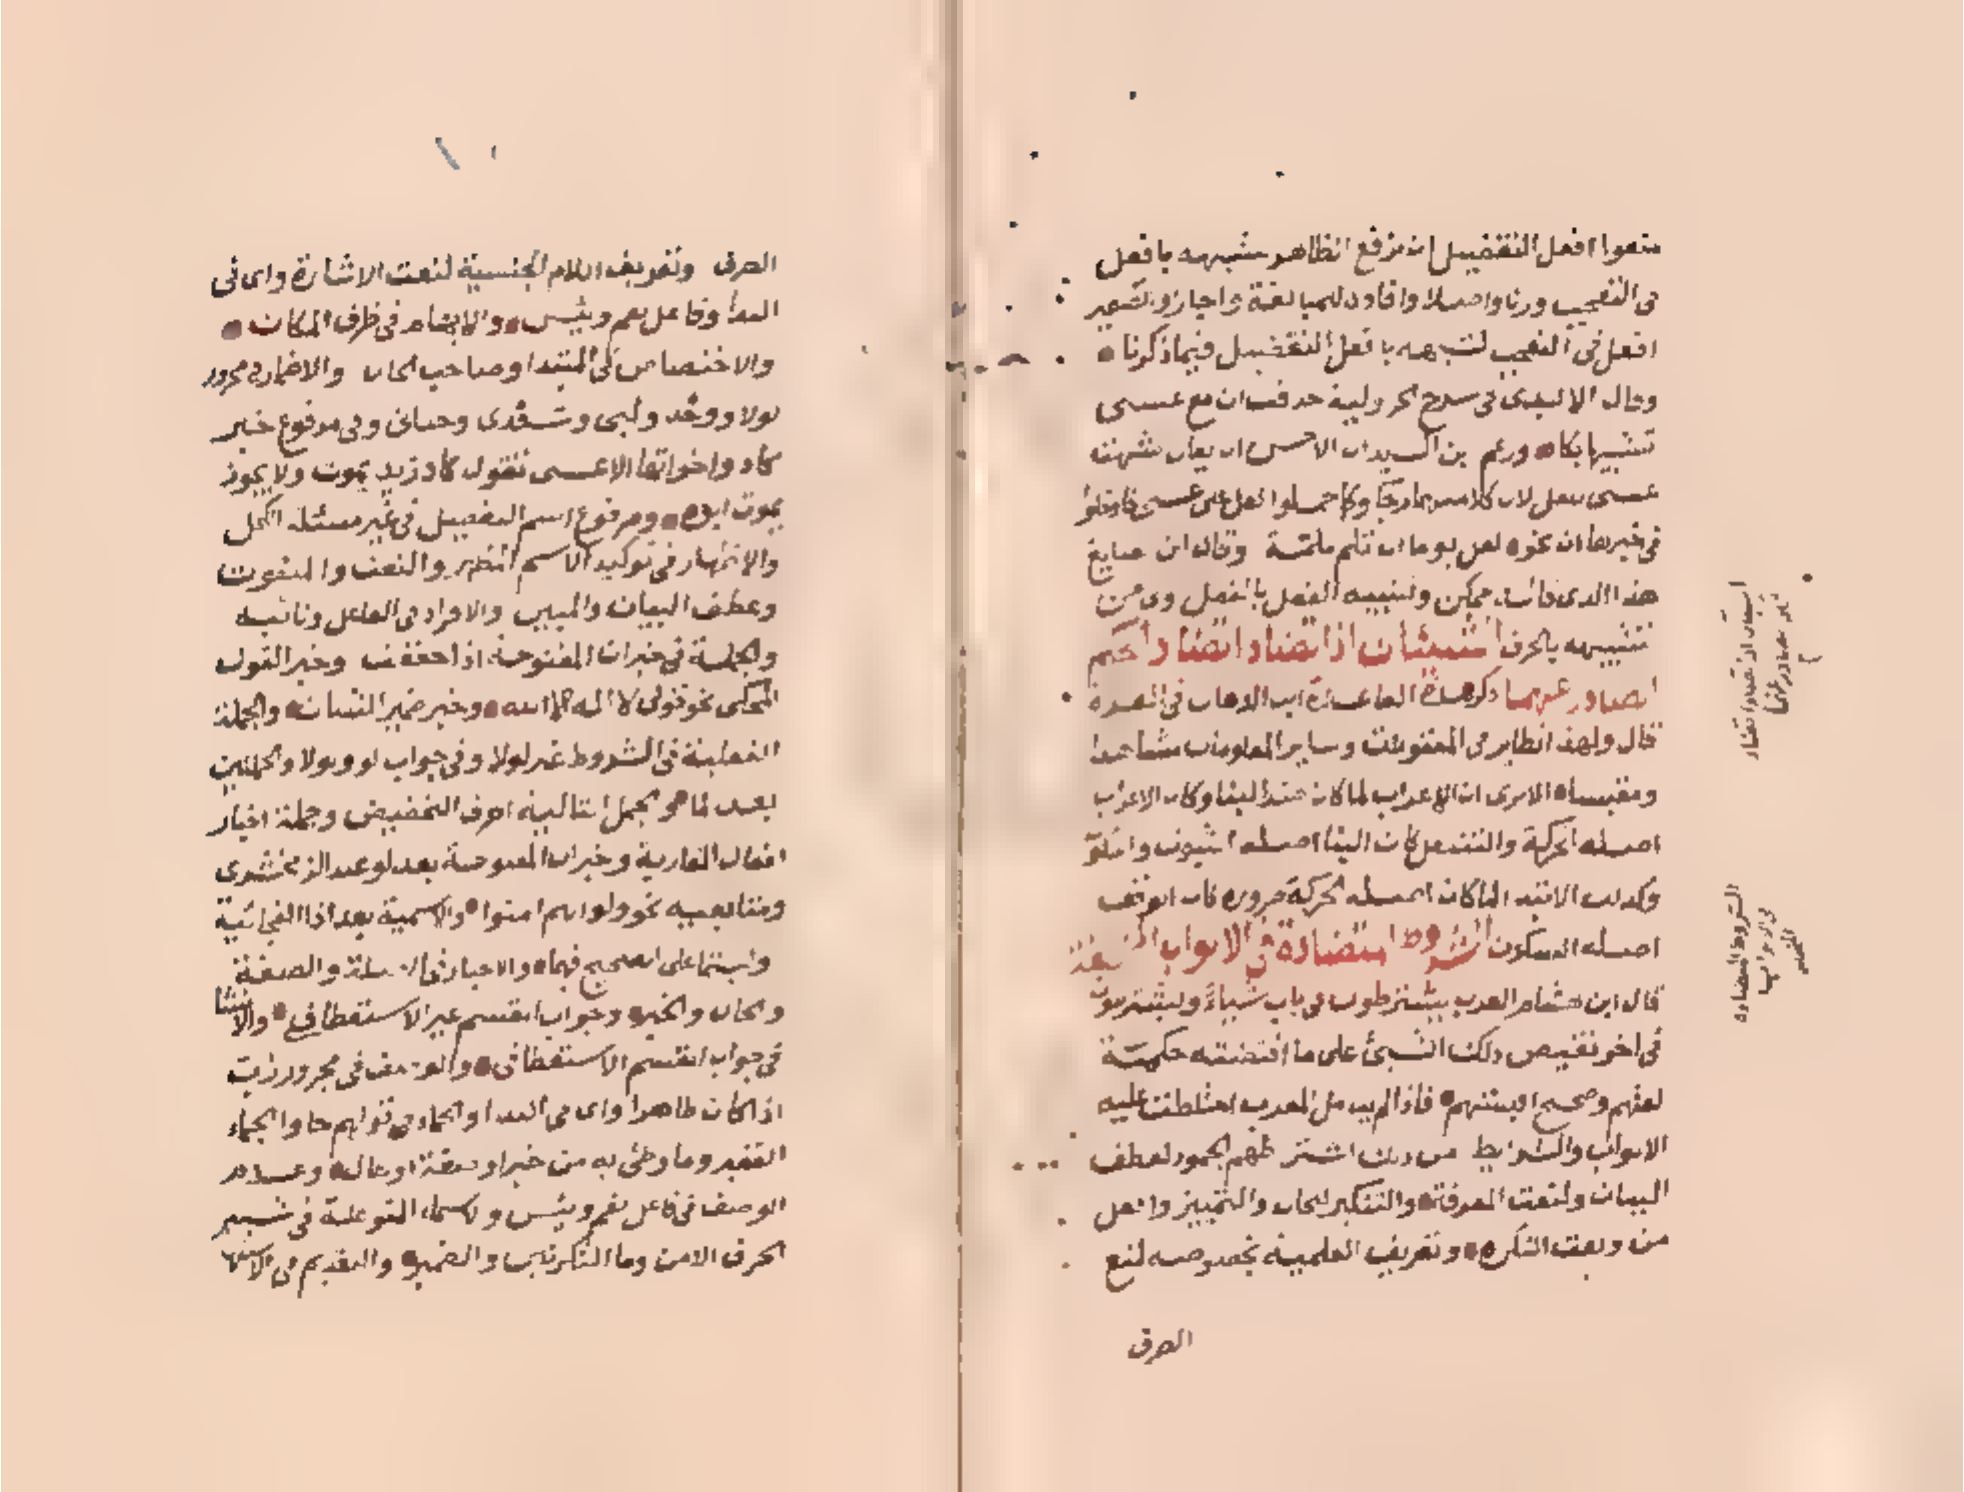 منعوا افعل التفضيل ان يرفع الظاهر لشبهه بافعل
فى التعجب وزنا واصلا وافادة للمبالغة واجازوا تصغير
افعل فى التعجب لشبهه بافعل التفضيل فيما ذكرنا
وقال الابدى فى شرح الجزولية حذفت ان مع عسى
تشبيها بكاد وزعم بن السيد ان الاحسن ان يقال شبهت
عسى بلعل لان كلاهما رجا وكما حملوا لعل على عسى فادخلوا
فى خبرها ان نحو لعل يوما ان تلم ملمة وقال ابن صايغ
هذا الذى قاله ممكن وتشبيه الفعل بالفعل اولى من
تشبيهه بالحرف الشيئان اذا تضادا تضاد الحكم
الصادر عنهما ذكر هذه القاعدة ابن الدهان فى الغرة
قال ولهذا نظاير فى المعقولات وساير المعلومات مشاهدا
ومقيسا الا ترى ان الاعراب لما كان ضد البنا وكان الاعراب
اصله الحركة والتنقل كان البنا اصله الثبوت والسكون
وكذلك الابتدا لما كان اصله الحركة ضرورة كان الوقف
اصله السكون الشروط المتضادة فى الابواب المختلفة
قال ابن هشام العرب يشترطون فى باب شياء ويشترطون
فى اخر نقيض ذلك الشىء على ما اقتضته حكمة
لغتهم وصحيح اقيستهم فاذا لم يتامل المعرب اختلطت عليه
الابواب والشرايط من ذلك اشتراطهم الجمود لعطف
البيان ولنعت المعرفة والتنكير للحال والتمييز وافعل
من ونعت النكرة وتعريف العلمية بخصوصه لمنع
الصرف
استيتان اذا تضادا تضاد
الشروط المتضادة
فى الابواب
الصرف وتعريف اللام الجنسية لنعت الاشارة واى فى
الندا وفاعل نعم وبئس والابهام فى ظرف المكان
والاختصاص فى المبتدا وصاحب الحال والاضمار فى مجرور
لولا ووحد ولبى وسعدى وحنانى وفى مرفوع خبر
كاد واخواتها الا عسى تقول كاد زيد يموت ولا يجوز
يموت ابوه ومرفوع اسم التفضيل فى غير مسئلة الكحل
والاظهار فى توكيد الاسم المظهر والنعت والمنعوت
وعطف البيان والمبين والافراد فى الفاعل ونائبه
والجملة فى خبر ان المفتوحة اذا خففت وخبر القول
المحكى نحو قولى لا اله الا الله وخبر ضمير الشان والجملة
الفعلية فى الشروط غير لولا وفى جواب لو ولولا والجملتين
بعد لما والجمل التالية احرف التخضيض وجملة اخبار
افعال المقاربة وخبر ان المفتوحة بعد لو عند الزمخشرى
ومتابعيه نحو ولو انهم امنوا والاسمية بعد اذا الفجائية
وليتما على الصحيح فيهما والاخبار فى الصلة والصفة
والحال والخبر وجواب القسم غير الاستعطافى والانشا
فى جواب القسم الاستعطافى والوصف فى مجرور رب
اذا كان ظاهرا واى فى الندا والجماء فى قولهم جاوا الجماء
الغفير وما وطئ به من خبر او صفة او حال وعدم
الوصف فى فاعل نعم وبئس والاسماء المتوغلة فى شبه
الحرف الا من وما النكرتين والضمير والتقديم فى الاستفهام